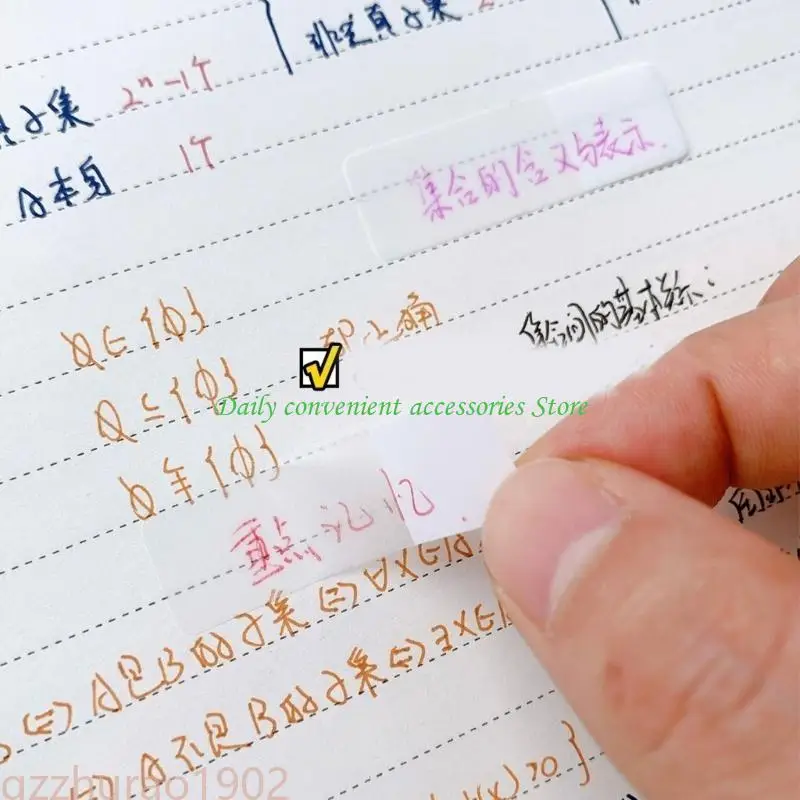 非空真子集 2
真子集 2ⁿ-1个
A本身 1个
集合的含义与表示
∅∈{∅}
都正确
集合间的基本关系:
∅⊆{∅}
Daily convenient accessories Store
∅⫋{∅}
重点记忆
⇔A是B的子集⇔∀x∈A
A不是B的子集⇔∃x∈
)>0}
qzzhurao1902